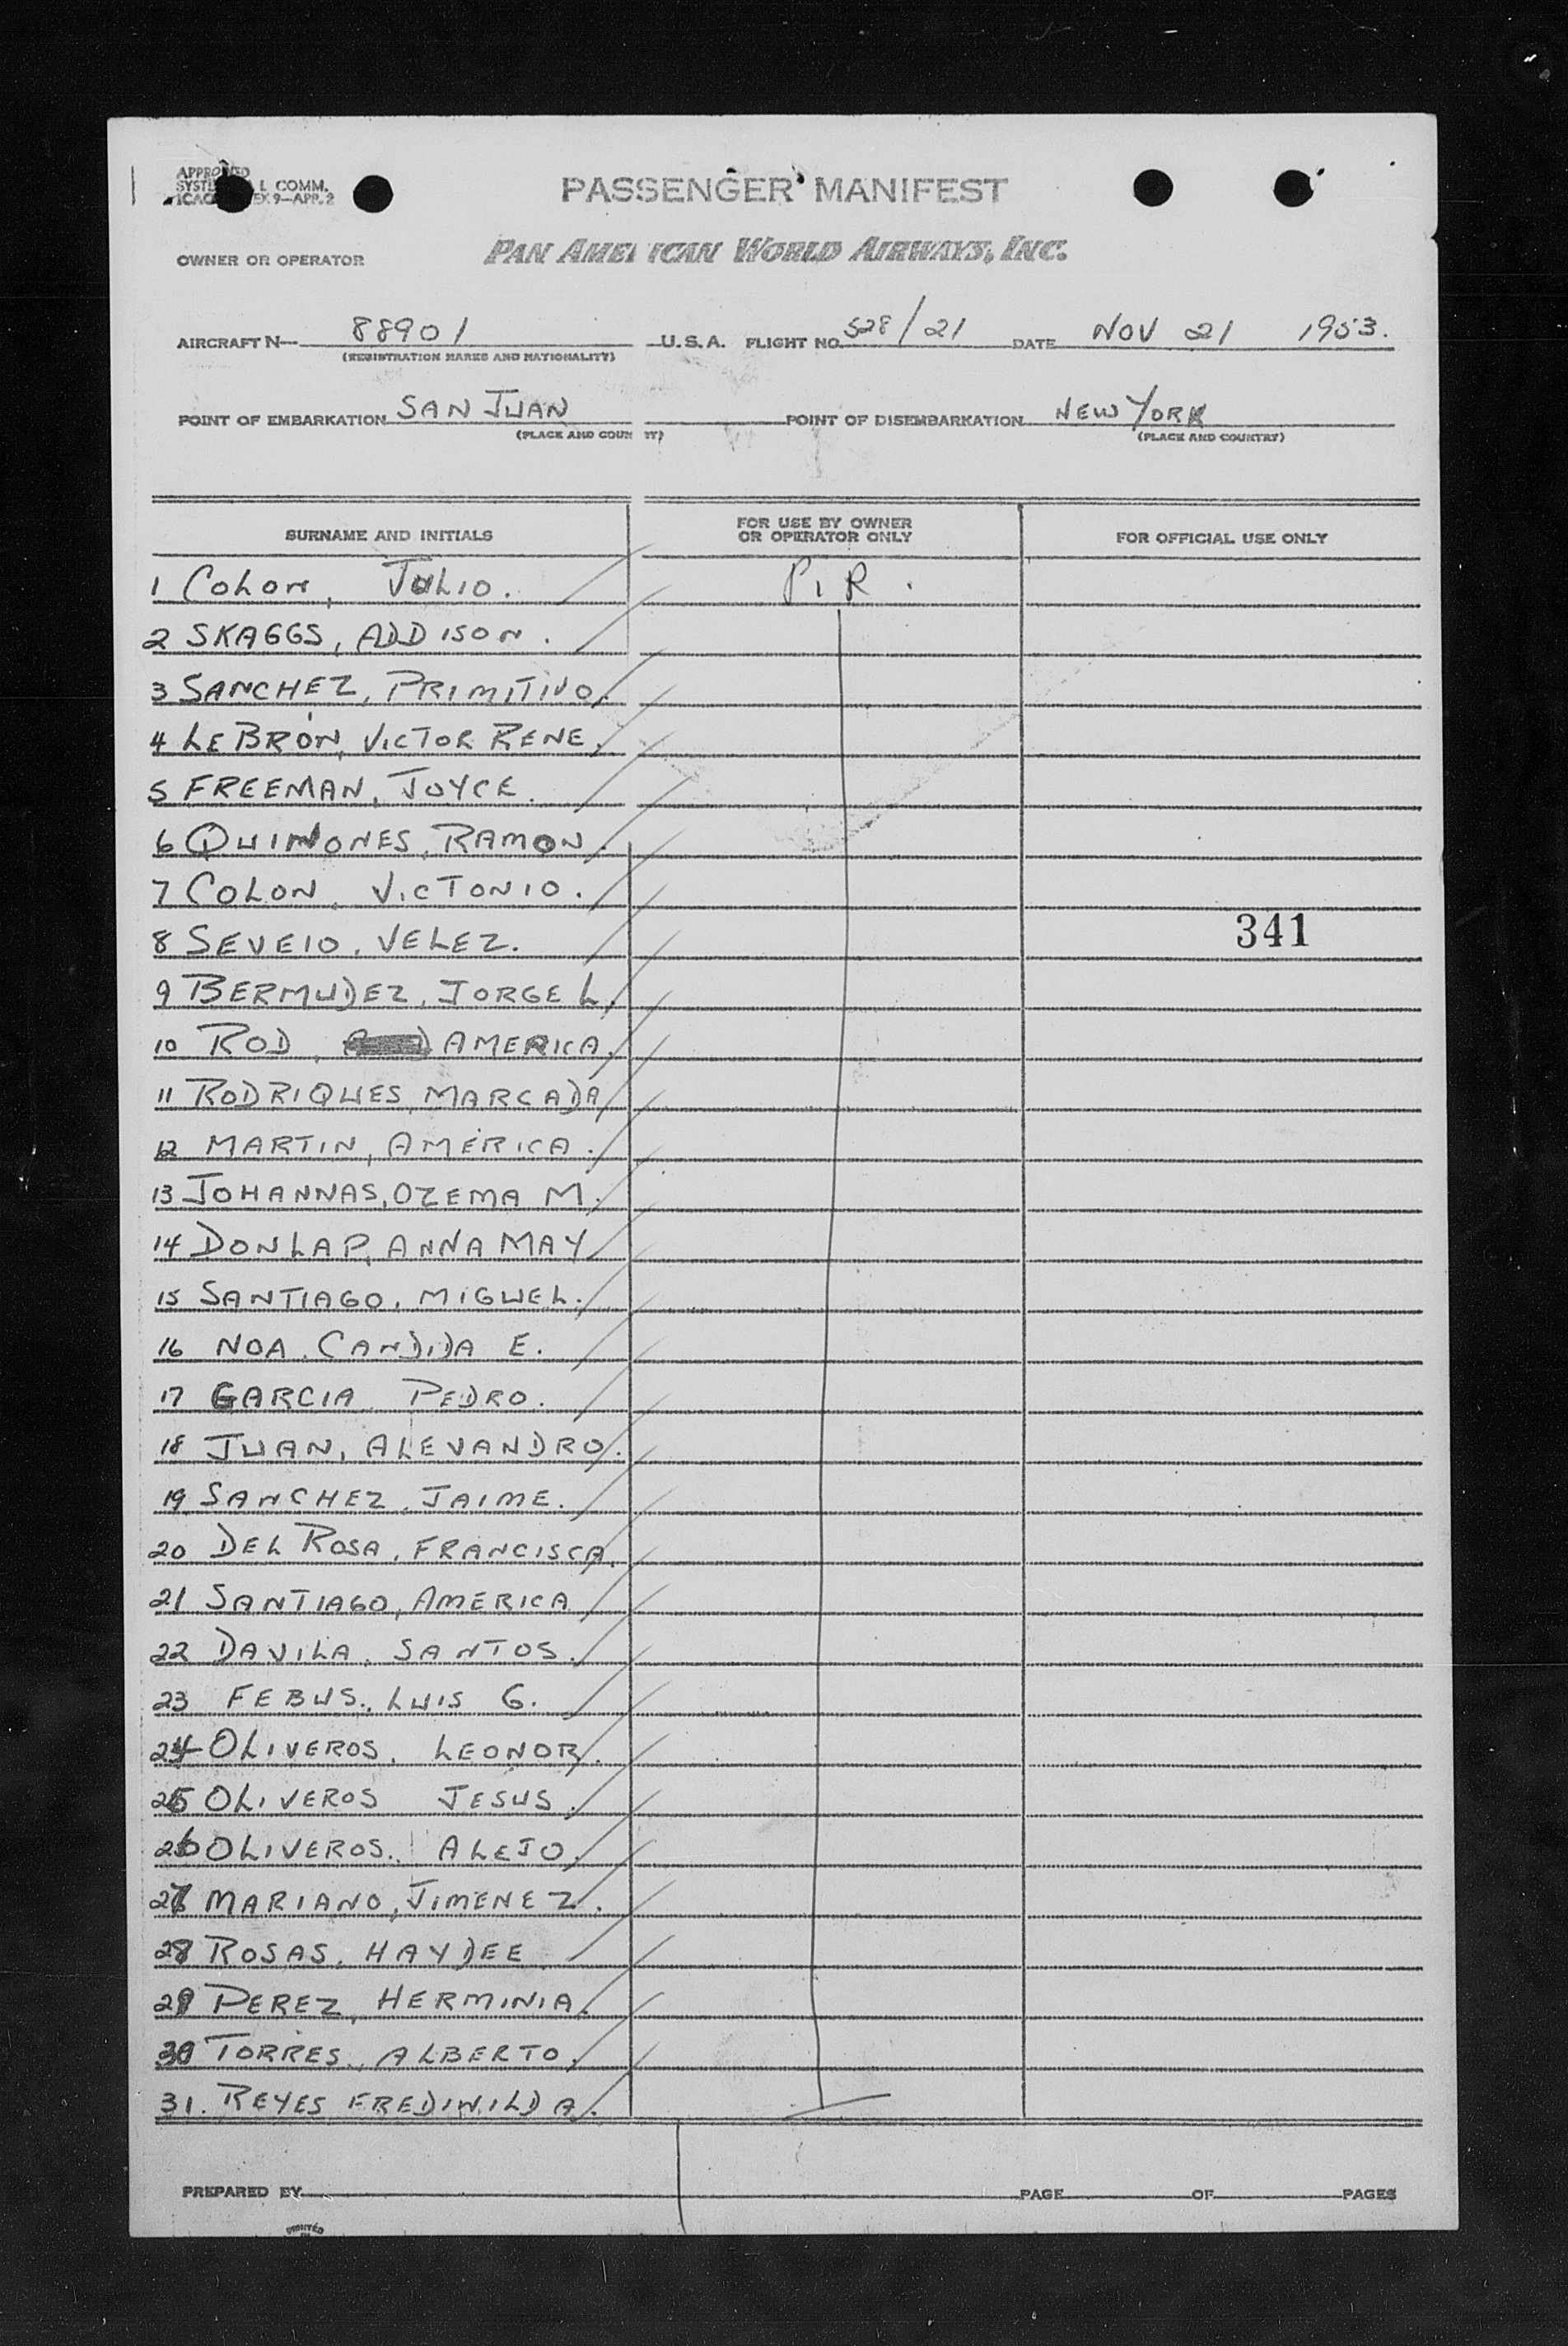 APPROVED
L COMM.
9-APP. 2
PASSENGER MANIFEST
OWNER OR OPERATOR PAN AMERICAN WORLD AIRWAYS, INC.
AIRCRAFT N— 88901 U.S.A. FLIGHT NO. 528/21 DATE NOV 21 1953.
(REGISTRATION MARKS AND NATIONALITY)
POINT OF EMBARKATION SAN JUAN POINT OF DISEMBARKATION NEW YORK
(PLACE AND COUNTRY) (PLACE AND COUNTRY)
SURNAME AND INITIALS FOR USE BY OWNER OR OPERATOR ONLY FOR OFFICIAL USE ONLY
1 COLON, JULIO. P.R.
2 SKAGGS, ADDISON.
3 SANCHEZ, PRIMITIVO.
4 LEBRON, VICTOR RENE.
5 FREEMAN, JOYCE.
6 QUINONES, RAMON.
7 COLON, VICTONIO.
8 SEVEIO, VELEZ. 341
9 BERMUDEZ, JORGE L.
10 ROD, AMERICA.
11 RODRIQUES, MARCADA
12 MARTIN, AMERICA.
13 JOHANNAS, OZEMA M.
14 DONLAP, ANNA MAY
15 SANTIAGO, MIGUEL.
16 NOA, CANDIDA E.
17 GARCIA, PEDRO.
18 JUAN, ALEVANDRO.
19 SANCHEZ, JAIME.
20 DEL ROSA, FRANCISCA.
21 SANTIAGO, AMERICA
22 DAVILA, SANTOS.
23 FEBUS., LUIS G.
24 OLIVEROS, LEONOR.
25 OLIVEROS JESUS.
26 OLIVEROS. ALEJO.
27 MARIANO, JIMENEZ.
28 ROSAS, HAYDEE
29 PEREZ, HERMINIA.
30 TORRES, ALBERTO.
31. REYES FREDIWILDA.
PREPARED BY PAGE OF PAGES